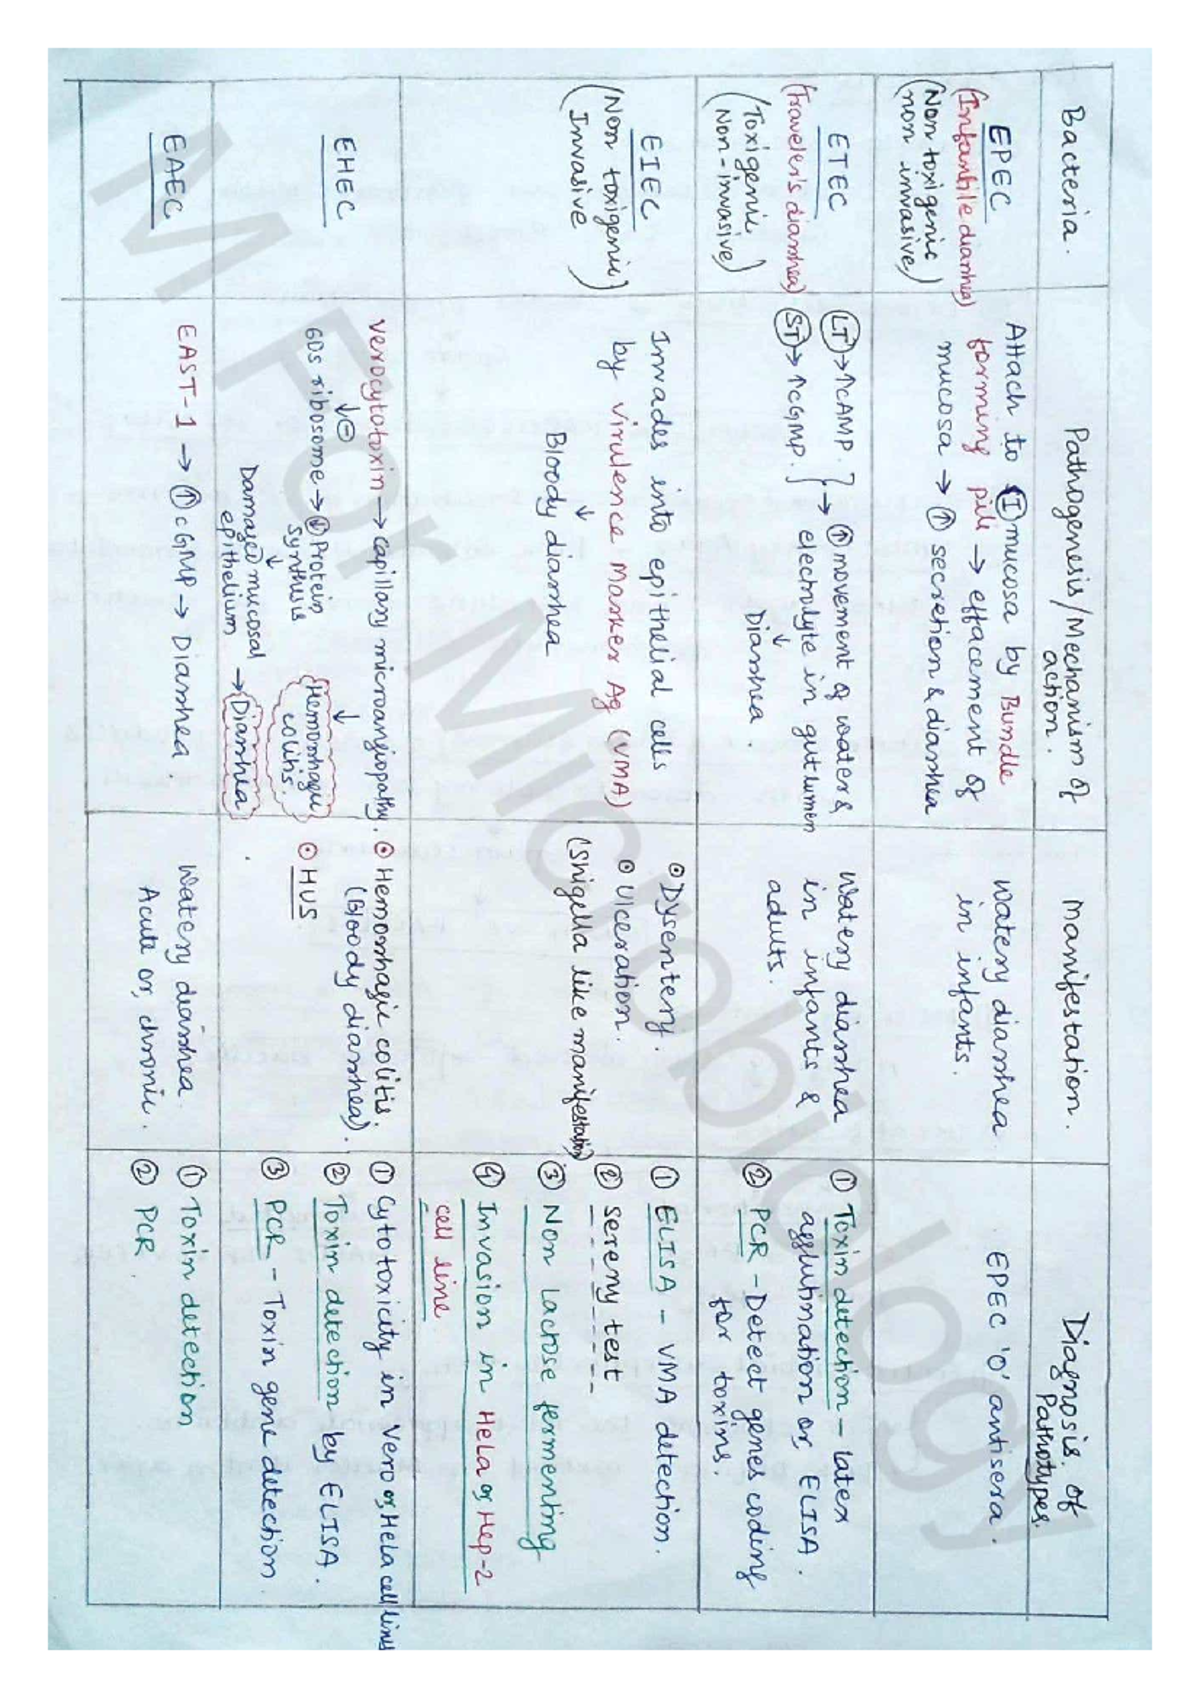 Bacteria.
Pathogenesis/Mechanism of
action.
Manifestation.
Diagnosis of
Pathotypes.
EPEC
(Infantile diarrhea)
(Non toxigenic
non invasive)
Attach to (I) mucosa by Bundle
forming pili → effacement of
mucosa → ↑ secretion & diarrhea
Watery diarrhea
in infants.
EPEC 'O' antisera.
ETEC
(Traveler's diarrhea)
(Toxigenic
Non-invasive)
LT → ↑cAMP. } → ↑ movement of water &
ST → ↑cGMP. electrolyte in gut lumen
↓
Diarrhea
Watery diarrhea
in infants &
adults.
① Toxin detection - latex
agglutination or, ELISA.
② PCR - Detect genes coding
for toxins
EIEC
(Non toxigenic)
(Invasive)
Invades into epithelial cells
by virulence marker Ag (VMA)
↓
Bloody diarrhea
⊙ Dysentery.
⊙ Ulceration.
(Shigella like manifestation)
① ELISA - VMA detection.
② Sereny test
③ Non lactose fermenting
④ Invasion in HeLa or Hep-2
cell line
EHEC
Verocytotoxin → capillary microangiopathy.
↓⊖ ↓
60s ribosome → ↓ Protein
synthesis
Hemorrhagic
colitis
↓
Damaged mucosal → Diarrhea
epithelium
⊙ Hemorrhagic colitis.
(Bloody diarrhea).
⊙ HUS
① Cytotoxicity in Vero or Hela cell lines
② Toxin detection by ELISA.
③ PCR - Toxin gene detection.
EAEC
EAST-1 → ↑ cGMP → Diarrhea
Watery diarrhea.
Acute or, chronic.
① Toxin detection
② PCR
M For Microbiology